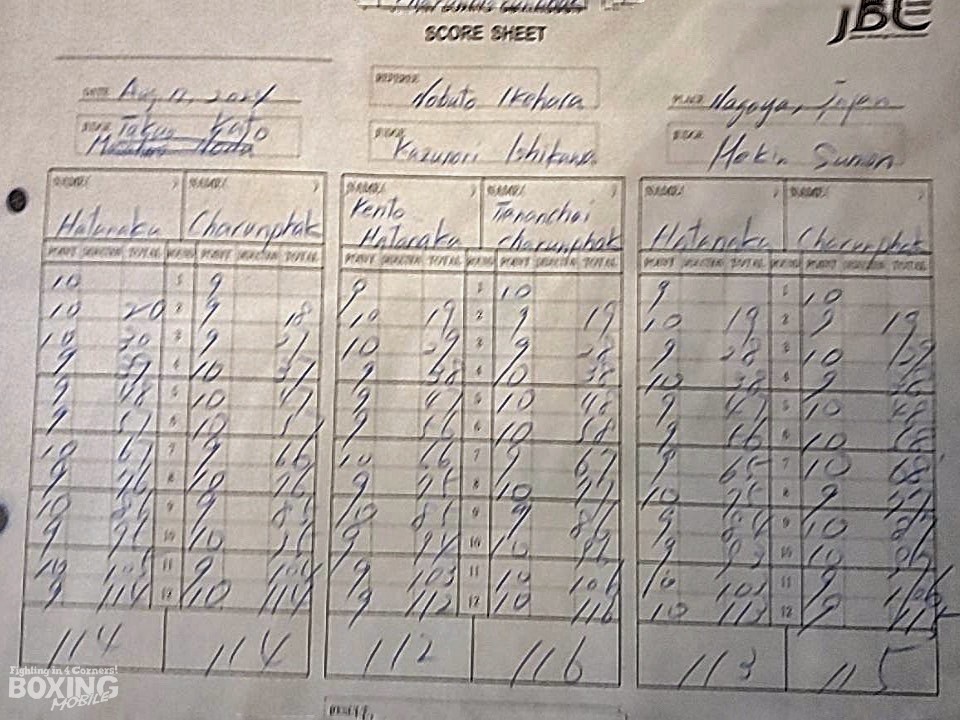 SCORE SHEET
JBC
DATE Aug 17, 2024
REFEREE Nobuto Ikehara
PLACE Nagoya, Japan
JUDGE Takuo Kato
JUDGE Kazunori Ishikawa
JUDGE
NAME NAME NAME NAME NAME NAME
Hatanaka Charunphak Kento Hatanaka Tananchai Charunphak Hatanaka Charunphak
POINT TOTAL ROUND POINT TOTAL POINT TOTAL ROUND POINT TOTAL POINT TOTAL ROUND POINT TOTAL
10 1 9 9 1 10 9 1 10
10 20 2 9 18 10 19 2 9 19 10 19 2 9 19
10 30 3 9 27 10 29 3 9 28 9 28 3 10 29
9 39 4 10 37 9 38 4 10 38 10 38 4 9 38
9 48 5 10 47 9 47 5 10 48 9 47 5 10 48
9 57 6 10 57 9 56 6 10 58 9 56 6 10 58
10 67 7 9 66 10 66 7 9 67 9 65 7 10 68
9 76 8 10 76 9 75 8 10 77 10 75 8 9 77
10 86 9 9 85 10 85 9 9 86 9 84 9 10 87
9 95 10 10 95 9 94 10 10 96 9 93 10 10
10 105 11 9 104 9 103 11 10 106 10 103 11 9 106
9 114 12 10 114 9 112 12 10 116 10 113 12 9 115
114 114 112 116 113 115
Fighting in 4 Corners!
BOXING
MOBILE